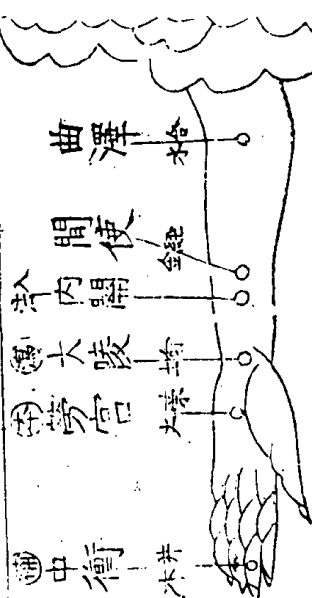 曲澤 水合
間使 金經
內關
瀉 大陵
勞宮 火滎
補 中衝 木井